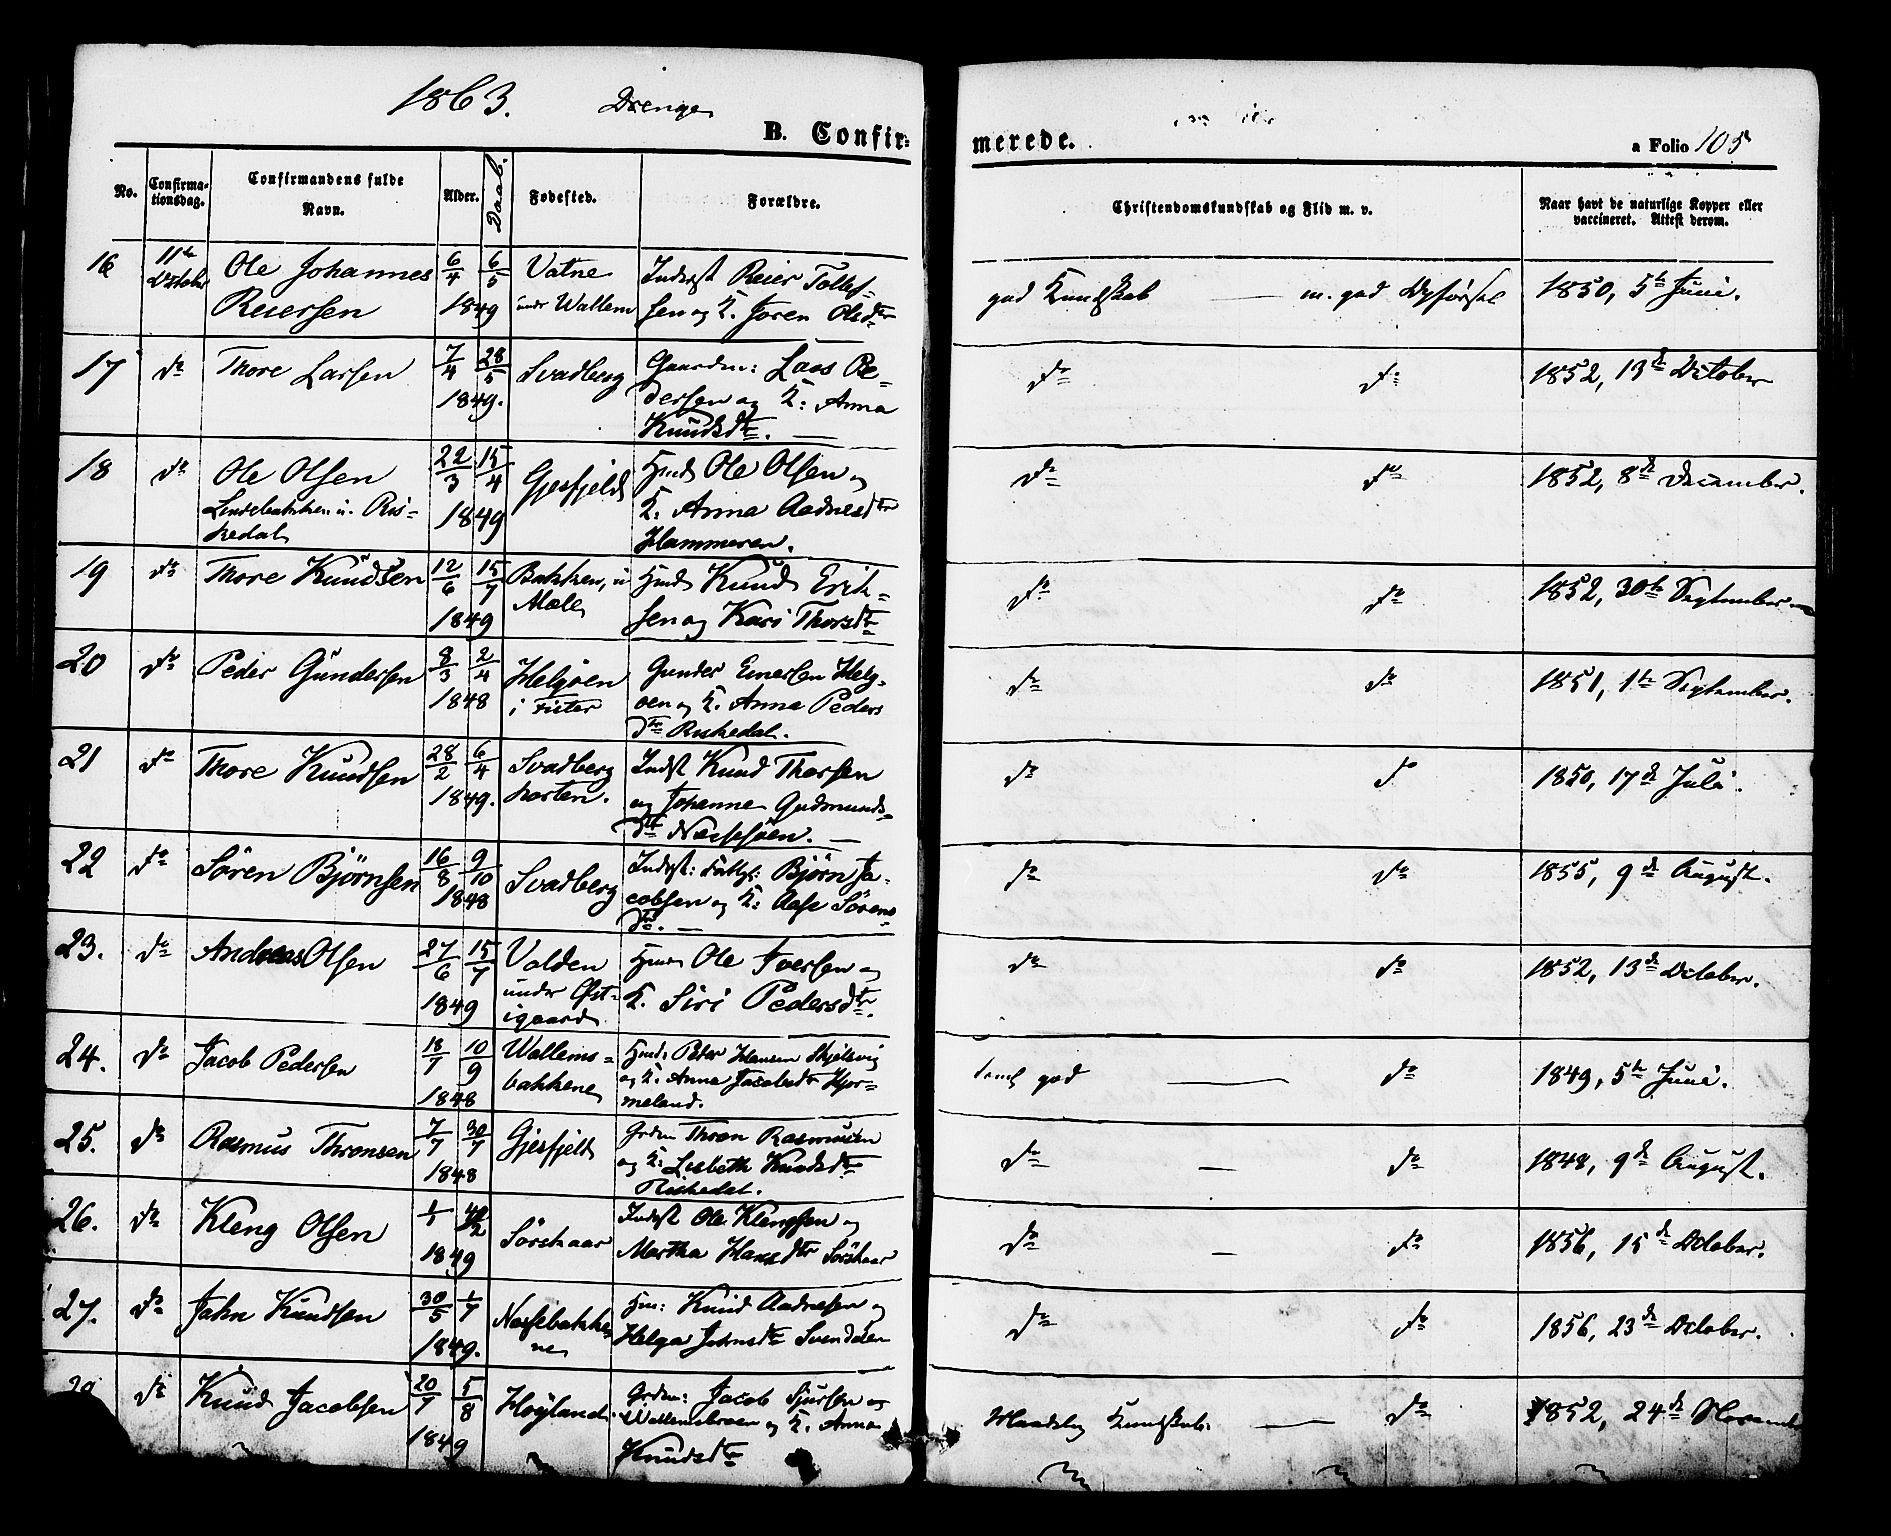 1863. Drenge
B. Confirmerede.
a Folio 105
No.
Confirmationsdag.
Confirmandens fulde Navn.
Alder.
Daab.
Fødested.
Forældre.
Christendomskundskab og Flid m. v.
Naar havt de naturlige Kopper eller vaccineret. Attest derom.
16 11te October Ole Johannes Reiersen 6/4 6/5 1849 Vatne under Wallem Inderst Reier Tollefsen og K. Joren Olsdtr god Kundskab — m. god Opførsel 1850, 5te Juni.
17 do Thore Larsen 7/4 28/5 1849. Svadberg Gaardm: Lars Pedersen og K: Anna Knudsdtr. — do do 1852, 13de October
18 do Ole Olsen Lindebakken u. Riskedal 22/3 15/4 1849 Gjesfjeld Hmd Ole Olsen og K: Anna Aadnesdtr Hammeren. do do 1852, 8de December.
19 do Thore Knudsen 12/6 15/7 1849 Bakken, u Mæle Hmd Knud Eriksen og Kari Thorsdtr do do 1852, 30te September
20 do Peder Gundersen 8/3 2/4 1848 Helgøen i Fister Gunder Einersen Helgøen og K. Anna Peders dtr Riskedal. do do 1851, 1te September.
21 do Thore Knudsen 28/2 6/4 1849. Svadberg Indst Knud Thorsen og Johanne Gudmunds dtr Nessesøen. — do do 1850, 17de Juli.
22 do Sören Bjørnsen 16/8 9/10 1848 Svadberg Inderst: Bjørn Jacobsen og K: Aase Sörens dtr. — do do 1855, 9de August.
23. do Andreas Olsen 27/6 15/7 1849 Valden under Østigaard Hmd Ole Iversen og K. Siri Pedersdtr. do do 1852, 13de October.
24. do Jacob Pedersen 18/7 10/9 1848 Wallemsbakkene Hmd: Peder Hansen Skjelsvig og K. Anna Jacobsdtr Hjormeland. temml god — do 1849, 5te Juni.
25. do Rasmus Thronsen 7/7 30/7 1848 Gjesfjeld Grdm Thron Rasmusen og K: Lisbeth Knudsdtr Riskedal. do — do 1848, 9de August.
26. do Kleng Olsen 1849 Sörskaar Inderst Ole Klengsen og Martha Hansdtr Sörskaar do — do 1856, 15de October.
27. do Jahn Knudsen 30/5 1/7 1849. Nessebakkene Hm: Knud Aadnesen og Helga Johnsdtr Svendsen do do 1856, 23de October.
28 do Knud Jacobsen 20/7 5/8 1849 Høyland Grdm: Jacob Sjursen og K. Anna Knudsdtr Maadelig Kundskab. — do 1852, 24de Novemb